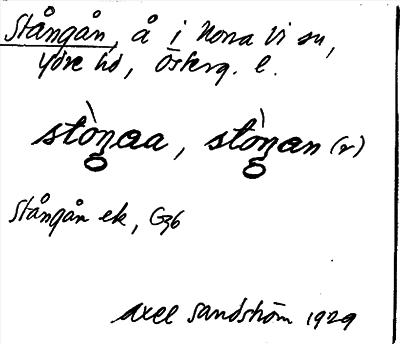 Stångån, å i Norra Vi sn,
Ydre hd, Österg. l.
stòŋaa, stòŋan (r)
Stångån ek, G36
Axel Sandström 1929